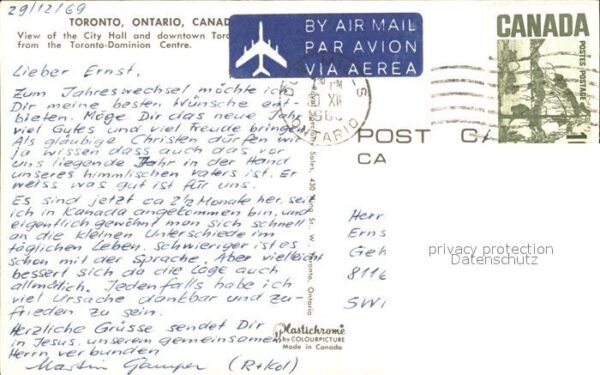 29/12/69
TORONTO, ONTARIO, CANAD
View of the City Hall and downtown Toro
from the Toronto-Dominion Centre.
BY AIR MAIL
PAR AVION
VIA AEREA
CANADA
POSTES·POSTAGE
ONTARIO
POST CA
CA
Lieber Ernst,
Zum Jahreswechsel möchte ich
Dir meine besten Wünsche ent-
bieten. Möge Dir das neue Jahr
viel Gutes und viel Freude bringen.
Als gläubige Christen dürfen wir
ja wissen dass auch das vor
uns liegende Jahr in der Hand
unseres himmlischen Vaters ist. Er
weiss was gut ist für uns.
Es sind jetzt ca 2½ Monate her, seit
ich in Kanada angekommen bin, und
eigentlich gewöhnt man sich schnell
an die kleinen Unterschiede im
täglichen Leben. Schwieriger ist es
schon mit der Sprache. Aber vielleicht
bessert sich da die Lage auch
allmählich. Jedenfalls habe ich
viel Ursache dankbar und zu-
frieden zu sein.
Herzliche Grüsse sendet Dir
in Jesus, unserem gemeinsamen
Herrn verbunden
Martin Gamper (R+Kol)
Sales, 430 King St., W., Toronto, Ontario
Plastichrome
by COLOURPICTURE
Made in Canada
Herr
Erns
Geh
8116
SWI
privacy protection
Datenschutz